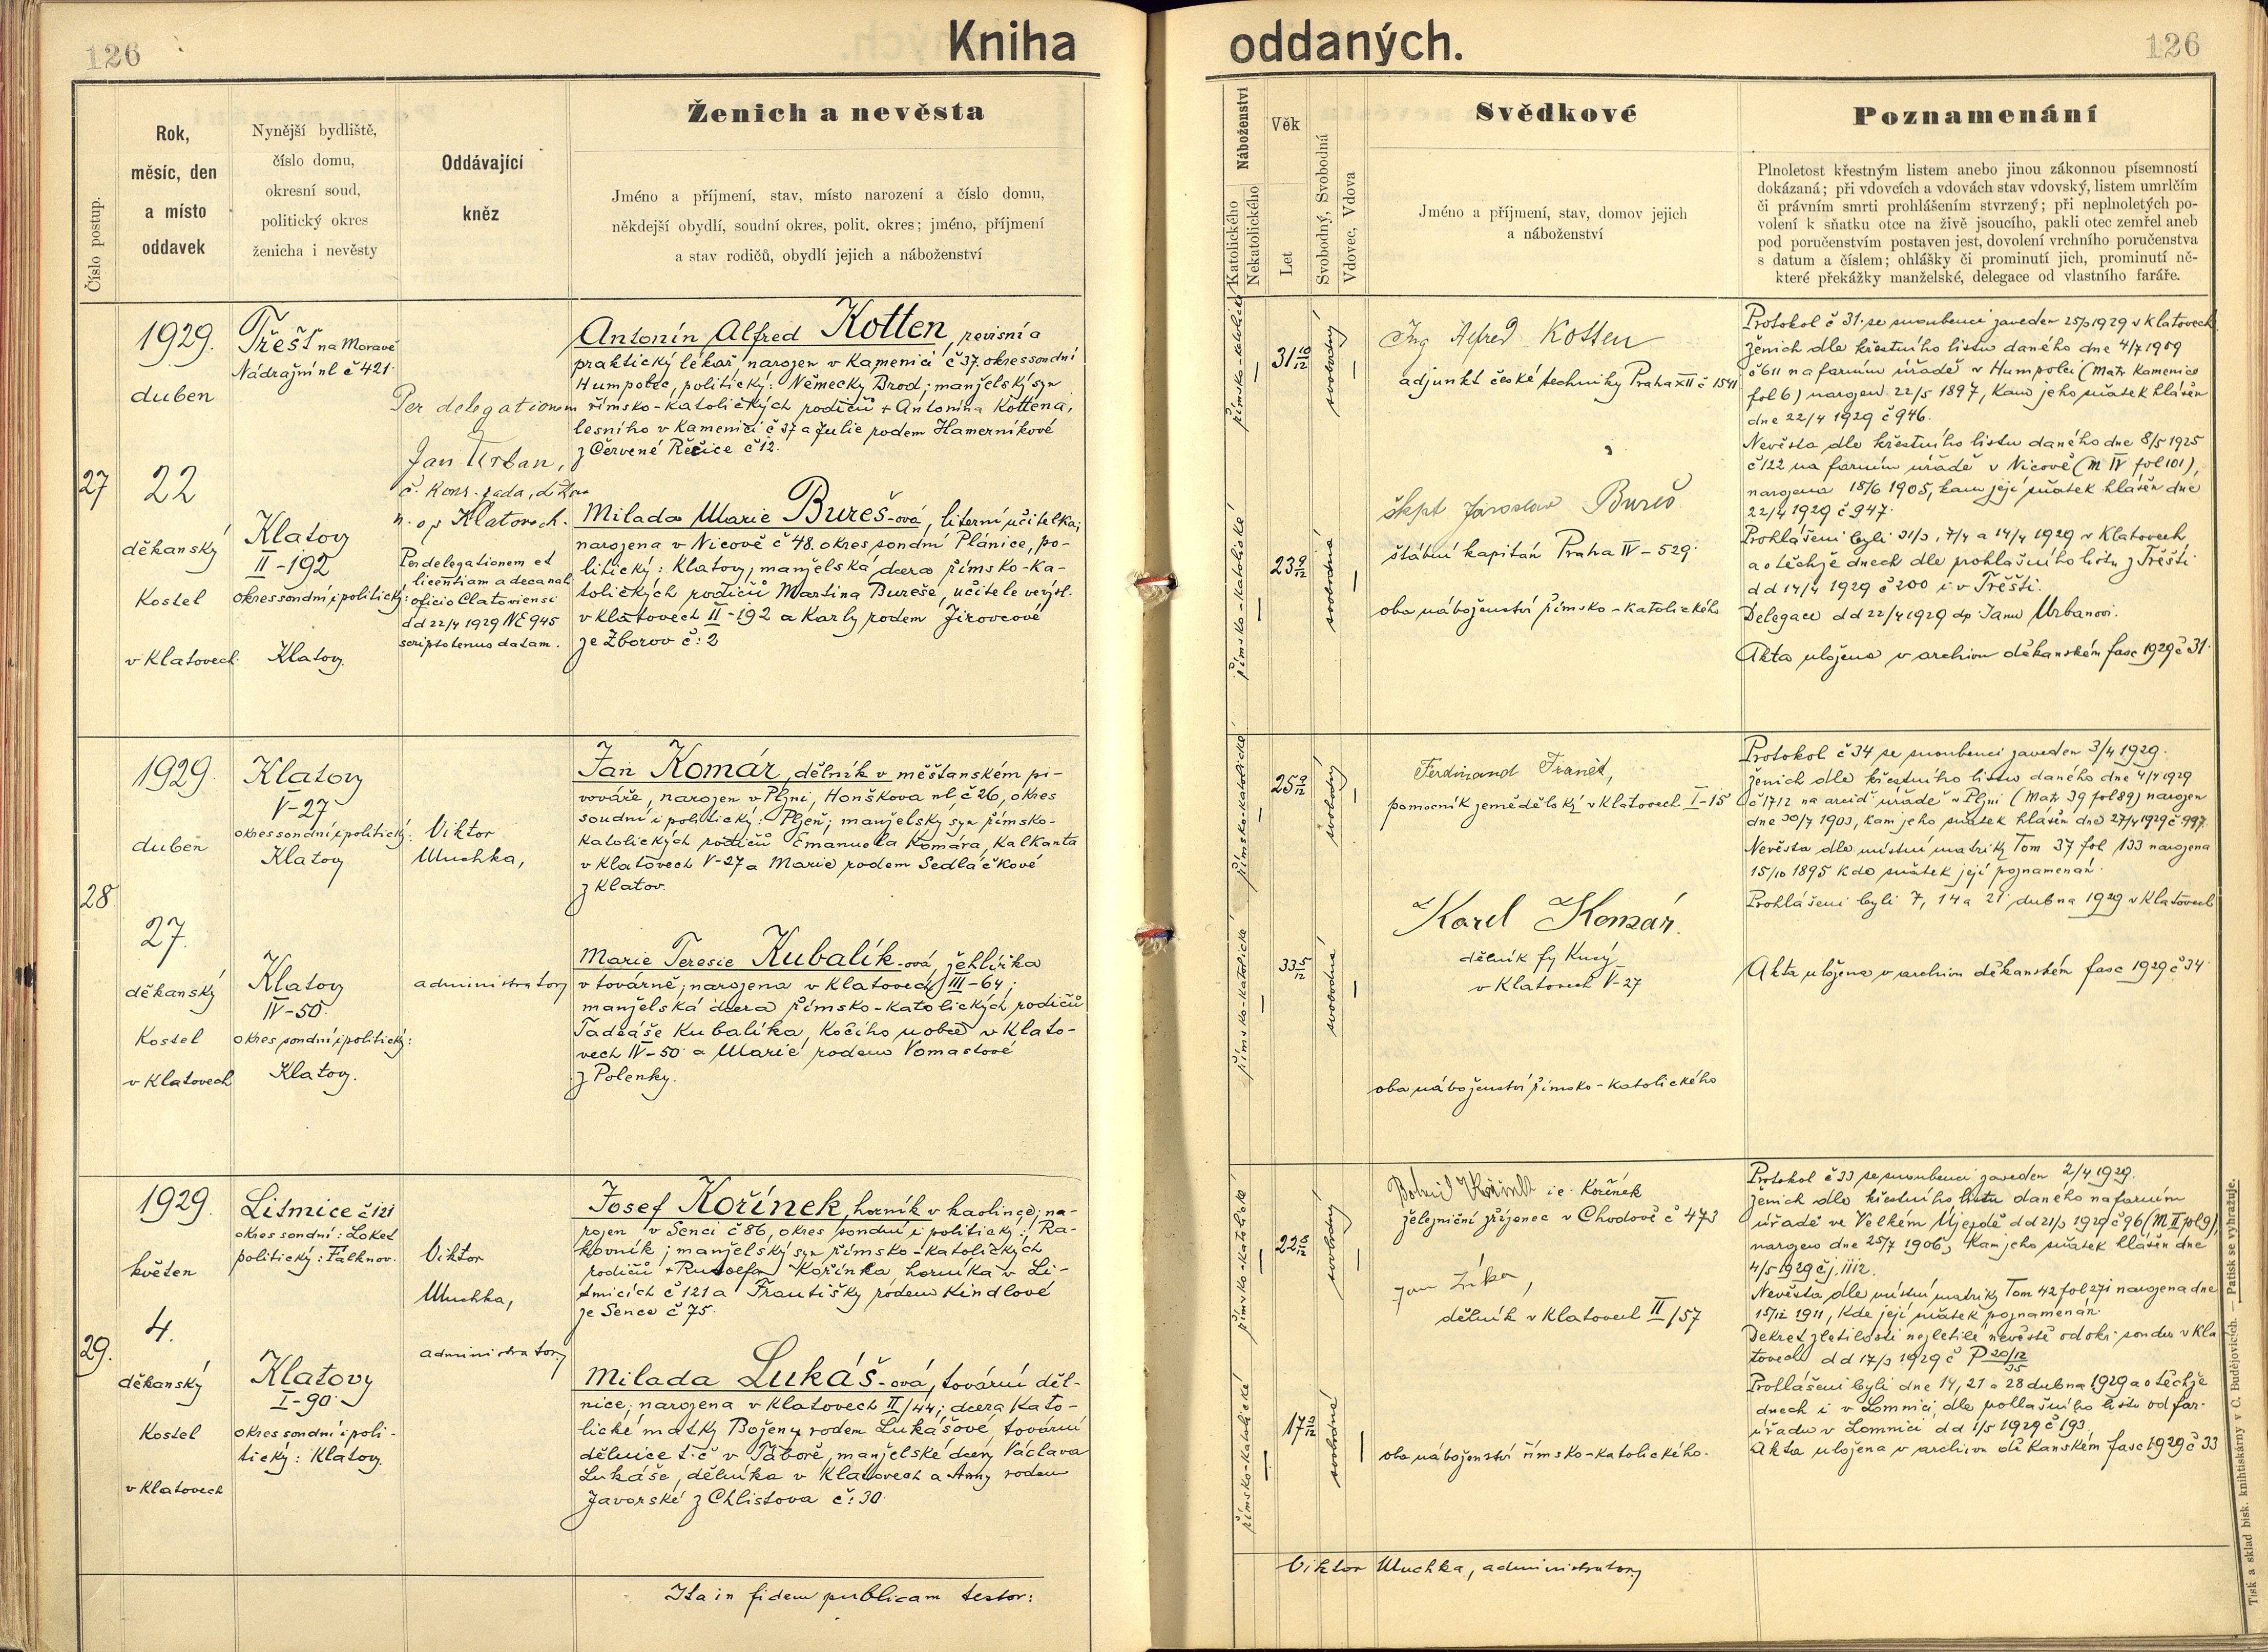 126
Kniha oddaných.
126
Číslo postup.
Rok,
měsíc, den
a místo
oddavek
Nynější bydliště,
číslo domu,
okresní soud,
politický okres
ženicha i nevěsty
Oddávající
kněz
Ženich a nevěsta
Jméno a příjmení, stav, místo narození a číslo domu,
někdejší obydlí, soudní okres, polit. okres; jméno, příjmení
a stav rodičů, obydlí jejich a náboženství
Náboženství
Katolického
Nekatolického
Věk
Let
Svobodný, Svobodná
Vdovec, Vdova
Svědkové
Jméno a příjmení, stav, domov jejich
a náboženství
Poznamenání
Plnoletost křestným listem anebo jinou zákonnou písemností
dokázaná; při vdovcích a vdovách stav vdovský, listem umrlčím
či právním smrti prohlášením stvrzený; při neplnoletých po-
volení k sňatku otce na živě jsoucího, pakli otec zemřel aneb
pod poručenstvím postaven jest, dovolení vrchního poručenstva
s datum a číslem; ohlášky či prominutí jich, prominutí ně-
které překážky manželské, delegace od vlastního faráře.
27
1929.
duben
22
děkanský
Kostel
v Klatovech
Třešť na Moravě
Nádražní ul č 421
Klatovy
II-192
okres soudní i politický:
Klatovy
Per delegationem
Jan Urban,
č. kons. rada, děkan
n. op Klatovech.
Per delegationem et
licentiam a decanali
oficio Clatoviensi
dd 22/4 1929 NE 945
scriptotenus datam.
Antonín Alfred Kotten, revisní a
praktický lékař, narozen v Kamenici č 37. okres soudní
Humpolec, politický: Německy Brod; manželský syn
římsko-katolických rodičů + Antonína Kottena,
lesního v Kamenici č 37 a Julie rodem Hamerníkové
z Červené Řečice č 12.
Milada Marie Bureš-ová, literní učitelka;
narozena v Nicově č 48. okres soudní Plánice, po-
litický: Klatovy; manželská dcera římsko-ka-
tolických rodičů Martina Bureše, učitele ve výsl.
v Klatovech II-192 a Karly rodem Jirovcové
ze Zborov č: 2
římsko-katolické
31 10/12
svobodný
římsko-katolické
23 9/12
svobodná
Ing Alfred Kotten
adjunkt české techniky Praha XII č 1541
škpt Jaroslav Bureš
štábní kapitán Praha IV - 529
oba náboženství římsko-katolického
Protokol č 31. se snoubenci zaveden 25/3 1929 v Klatovech
Ženich dle křestního listu daného dne 4/7 1909
č 611 na farním úřadě v Humpolci (Matr Kamenice
fol 6) narozen 22/5 1897, kam jeho sňatek hlášen
dne 22/4 1929 č 946.
Nevěsta dle křestního listu daného dne 8/5 1925
č 122 na farním úřadě v Nicově (M IV fol 101),
narozena 18/6 1905, kam její sňatek hlášen dne
22/4 1929 č 947.
Prohlášeni byli 31/3, 7/4 a 14/4 1929 v Klatovech
a o těchže dnech dle prohlašního listu z Třešti
dd 14/4 1929 č 200 i v Třešti.
Delegace dd 22/4 1929 dp Janu Urbanovi.
Akta uložena v archivu děkanském fasc 1929 č 31.
28.
1929.
duben
27.
děkanský
Kostel
v Klatovech
Klatovy
V-27
okres soudní i politický:
Klatovy
Klatovy
IV-50
okres soudní i politický:
Klatovy.
Viktor
Muchka,
administrator
Jan Komár, dělník v měšťanském pi-
vováře, narozen v Plzni, Honškova ul. č 26, okres
soudní i politický: Plzeň; manželský syn římsko-
katolických rodičů Emanuela Komára, kalkanta
v Klatovech V-27 a Marie rodem Sedláčkové
z Klatov.
Marie Teresie Kubalík-ová, žehlířka
v továrně; narozena v Klatovech III-64;
manželská dcera římsko-katolických rodičů
Tadeáše Kubalíka, kočího u obce v Klato-
vech IV-50 a Marie rodem Vomastové
z Polenky.
římsko-katolické
25 9/12
svobodný
římsko-katolické
33 5/12
svobodná
Ferdinand Franět,
pomocník zemědělský v Klatovech I-15
Karel Komár.
dělník fy Kusý
v Klatovech V-27
oba náboženství římsko-katolického
Protokol č 34 se snoubenci zaveden 3/4 1929.
Ženich dle křestního listu daného dne 4/4 1929
č 1712 na arcid úřadě v Plzni (Matr 39 fol 89) narozen
dne 30/7 1903, kam jeho sňatek hlášen dne 27/4 1929 č 997.
Nevěsta dle místní matriky Tom 37 fol 133 narozena
15/10 1895 kde sňatek její poznamenán.
Prohlášeni byli 7, 14 a 21 dubna 1929 v Klatovech
Akta uložena v archivu děkanském fasc 1929 č 34.
29.
1929.
květen
4.
děkanský
Kostel
v Klatovech
Litmice č 121
okres soudní: Loket
politický: Falknov.
Klatovy
I-90.
okres soudní i poli-
tický: Klatovy.
Viktor
Muchka,
administrator
Josef Kořínek, horník v kaolince; na-
rozen v Senci č 86, okres soudní i politický: Ra-
kovník; manželský syn římsko-katolických
rodičů + Rudolfa Kořínka, horníka v Li-
tmicích č 121 a Františky rodem Kindlové
ze Sence č 75.
Milada Lukáš-ová, tovární děl-
nice; narozena v Klatovech II/44; dcera kato-
lické matky Boženy rodem Lukášové, tovární
dělnice t.č v Táboře, manželské dcery Václava
Lukáše, dělníka v Klatovech a Anny rodem
Javorské z Chlistova č: 30.
římsko-katolické
svobodný
římsko-katolické
svobodná
i.e. Kořínek
železniční zřízenec v Chodově č 473
Jan
dělník v Klatovech II/57
oba náboženství římsko-katolického.
Protokol č 33 se snoubenci zaveden 2/4 1929.
Ženich dle křestního listu daného na farním
úřadě ve Velkém Újezdě dd 21/3 1929 č 96 (M II fol 9),
narozen dne 25/7 1906, kam jeho sňatek hlášen dne
4/5 1929 čj. 1112.
Nevěsta dle místní matriky Tom 42 fol 271 narozena dne
15/12 1911, kde její sňatek poznamenán.
Dekret zletilosti nezletilé nevěstě od okr. soudu v Kla
tovech dd 17/3 1929 č P 20/12
Prohlášeni byli dne 14, 21 a 28 dubna 1929 a o těchže
dnech i v Lomnici dle prohlašního listu od far.
úřadu v Lomnici dd 1/5 1929 č 193.
Akta uložena v archivu děkanském fasc 1929 č 33
Ita in fidem publicam testor:
Viktor Muchka, administrator
Tisk a sklad bisk. knihtiskárny v Č. Budějovicích. — Patisk se vyhražuje.